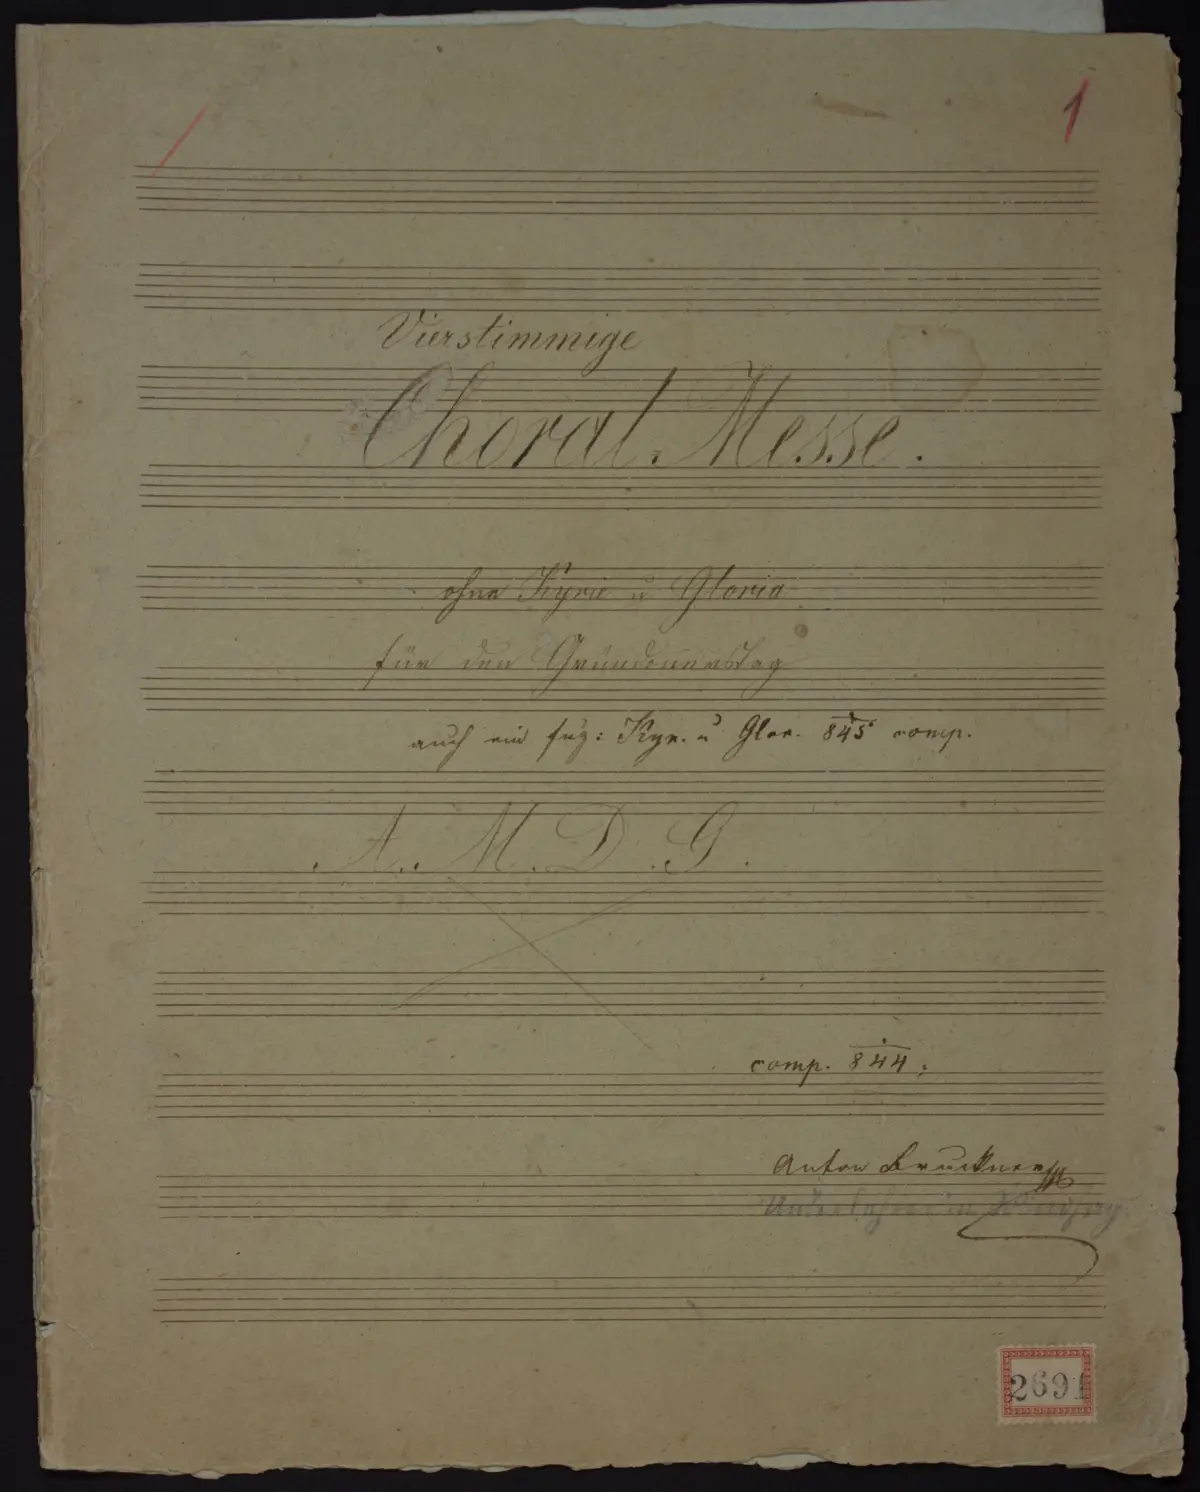 1
Vierstimmige
Choral-Messe.
ohne Kyrie u Gloria
für den Gründonnerstag
auch ein fug: Kyr. u Glor. 845 comp.
A. M. D. G.
comp. 844;
Anton Bruckner
Unterlehrer in
2691